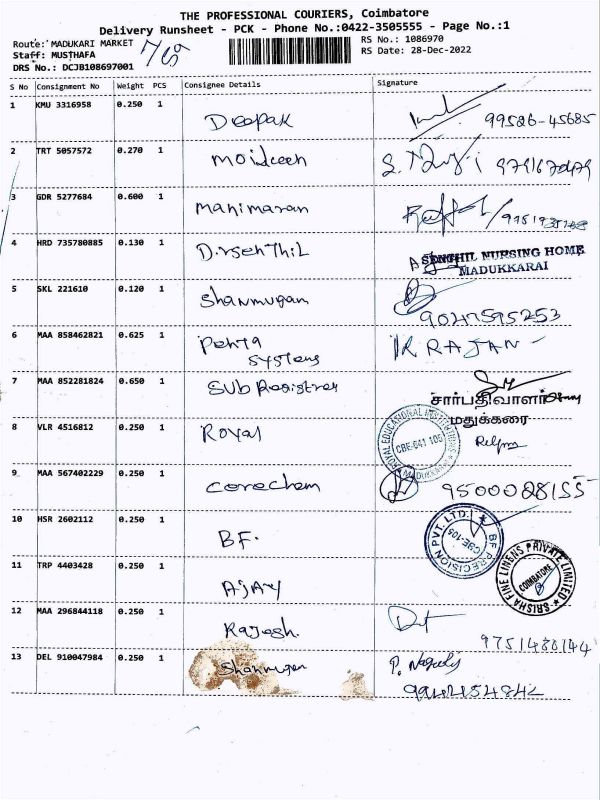 THE PROFESSIONAL COURIERS, Coimbatore
Delivery Runsheet - PCK - Phone No.:0422-3505555 - Page No.:1
Route: MADUKARI MARKET
RS No.: 1086970
Staff: MUSTHAFA
RS Date: 28-Dec-2022
DRS No.: DCJB108697001
S No Consignment No Weight PCS Consignee Details Signature
1 KMU 3316958 0.250 1 Deepak 99526-45685
2 TRT 5057572 0.270 1 Moideen
3 GDR 5277684 0.600 1 Manimaran
4 HRD 735780885 0.130 1 Dr.Senthil SENTHIL NURSING HOME
MADUKKARAI
5 SKL 221610 0.120 1 Shanmugam 9047595253
6 MAA 858462821 0.625 1 Penta K RAJAN
Systems
7 MAA 852281824 0.650 1 Sub Registrar சார்பதிவாளர்
மதுக்கரை
8 VLR 4516812 0.250 1 Royal ROYAL EDUCATIONAL INSTITUTIONS CBE-641 105 MADUKKARAI
9 MAA 567402229 0.250 1 Corechem 9500028155
10 HSR 2602112 0.250 1 BF. BF PRECISION PVT. LTD. CBE-105
11 TRP 4403428 0.250 1 Ajay SRISHA FINE LINENS PRIVATE LIMITED COIMBATORE
12 MAA 296844118 0.250 1 Rajesh.
13 DEL 910047984 0.250 1 Shanmugam